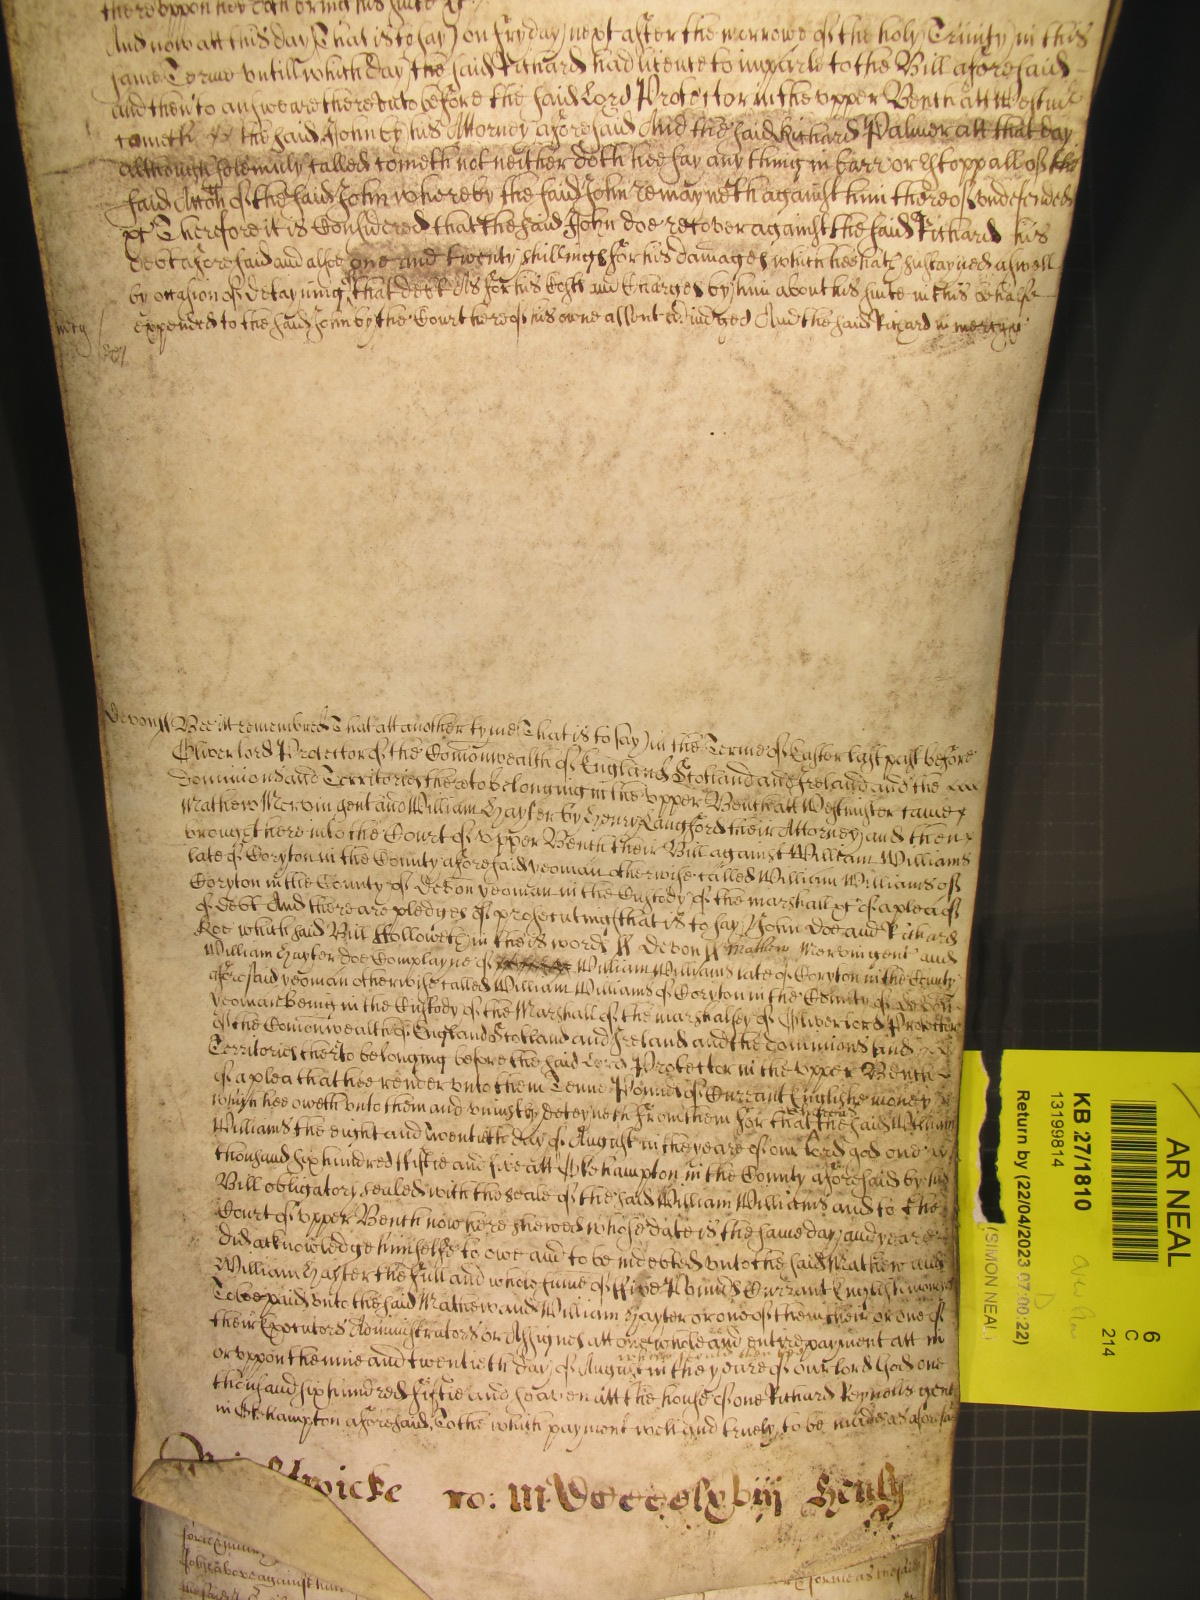 thereuppon hee doth bring his suite &c
And now att this day (That is to say) on fryday next after the morrowe of the holy Trinity in this
same Terme untill which day the said Richard had licence to imparle to the Bill aforesaid
and then to answeare thereunto before the said Lord Protector in the upper Bench att Westmr
cometh the said John by his Attorney aforesaid And the said Richard Palmer att that day
although solemnly called cometh not neither doth hee say any thing in barr or Estoppall of the
said Accon of the said John whereby the said John remayneth against him thereof undefended
&c Therefore it is Considered that the said John doe recover against the said Richard his
debt aforesaid and alsoe one and twenty shillings for his damages which hee hath sustayned aswell
by occasion of detayning that debt As for his Costs and Charges by him about his suite in this behalfe
expended to the said John by the Court here of his owne assent adiudged And the said Richard in mercy
mcy
Devon ss Bee itt remembred That att another tyme (That is to say) in the Terme of Easter last past before
Oliver lord Protector of the Comonwealth of England Scotland and Ireland and the
Dominions and Territories thereto belonging in the upper Bench att Westminster came
Mathew Morvin gent and William Hayter by Henry Langford their Attorney and then
brought here into the Court of upper Bench their Bill against William Williams
late of Coryton in the County aforesaid yeoman otherwise called William Williams of
Coryton in the County of Devon yeoman in the Custody of the marshall &c of a plea of
of debt And there are pledges of prosecuting (that is to say) John Doe and Richard
Roe which said Bill followeth in theis words ss Devon ss Mathew Morvin gent and
William Hayter doe Complayne of William Williams late of Coryton in the County
aforesaid yeoman otherwise called William Williams of Coryton in the County of Devon
yeoman being in the Custody of the Marshall of the marshalsey of Oliver lord Protector
of the Comonwealth of England Scotland and Ireland and the dominions and
Territories therto belonging before the said Lord Protector in the upper Bench
of a plea that hee render unto them Tenne Pounds of Currant English money
which hee oweth unto them and uniustly deteyneth from them For that the said William
Williams the eight and twentieth day of August in the yeare of our lord god one
thousand six hundred fiftie and five att Okehampton in the County aforesaid by his
Bill obligatory sealed with the seale of the said William Williams and to the
Court of upper Bench now here shewed whose date is the same day and yeare
did acknowledge himselfe to owe and to be indebted unto the said Mathew and
William Hayter the full and whole sume of ffive Pounds Currant English money
To bee paid unto the said Mathew and William Hayter or one of them their or one of
their Executors Administrators or Assignes att one whole and entire payment att in
or uppon the nine and twentieth day of August in the yeare of our lord God one
thousand six hundred fiftie and seaven att the house of one Richard Reynolls gent
in Okehampton aforesaid To the which payment well and truely to be made as aforesaid
ro: MDCCCClxviii Henly
AR NEAL
6
C
214
KB 27/1810
13199814
Return by (22/04/2023 07:00:22)
(SIMON NEAL)